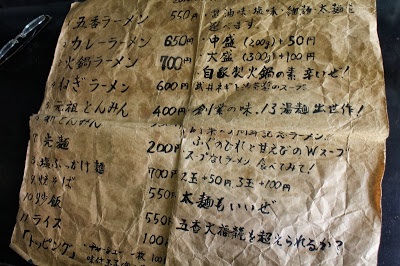 五香ラーメン 550円 醤油味・塩味・細麺・太麺を
選べます
カレーラーメン 650円 中盛(200g)+50円
火鍋ラーメン 700円 大盛(300g)+100円
自家製火鍋の素 辛いぜ!
ねぎラーメン 600円
元祖とんみん 400円 創業の味.13湯麺出世作!
ふくのひれと甘えびのWスープ
7 売麺 200円 スープなしラーメン 食べてみて!
8.塩ぶっかけ麺 700円
9.焼そば 550円 2玉+50円 3玉+100円
10.炒飯 550円 太麺もいいぜ
11.ライス 100円 五香火福龍を超えられるか?
「トッピング」 100円